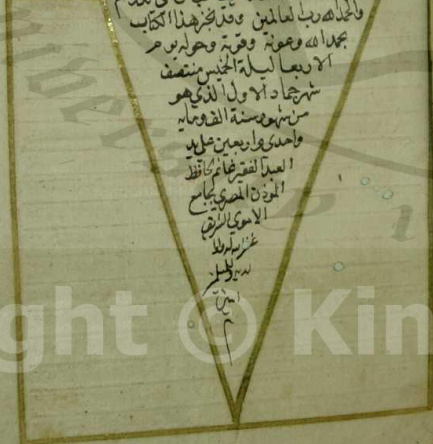 والحمد لله رب العالمين وقد نجز هذا الكتاب
بحمد الله وعونه وقوته وحوله يوم
الاربعا ليلة الخميس منتصف
شهر جماد الاول الذي هو
من شهور سنة الف ومايه
واحدى واربعين على يد
العبد الفقير غانم حافظ
الموذن المصري بجامع
الاموي الشريف
غفر الله له ولوا
لديه وللمسلمين
امين
م
ght © Kin